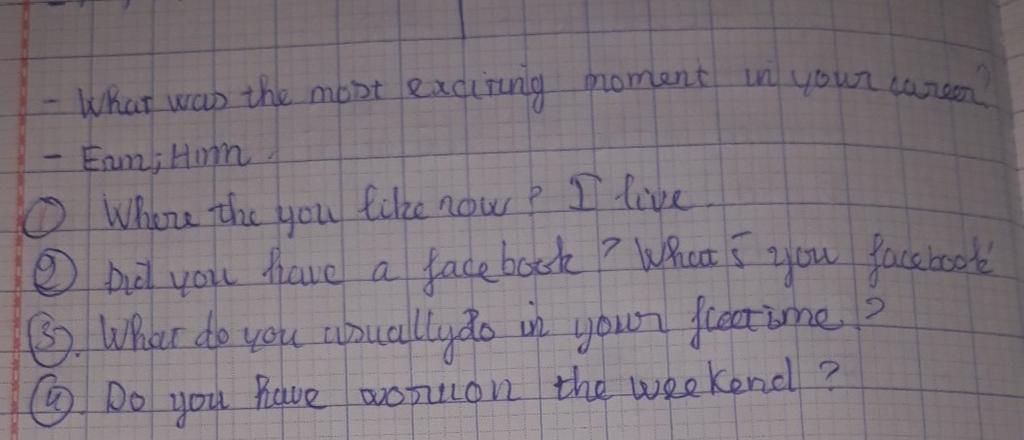 - What was the most exciting moment in your career?
- Erm, Hmm.
① Where the you like now? I live
② Did you have a facebook? What's you facebook
③. What do you usually do in your freetime?
④. Do you have on the weekend?